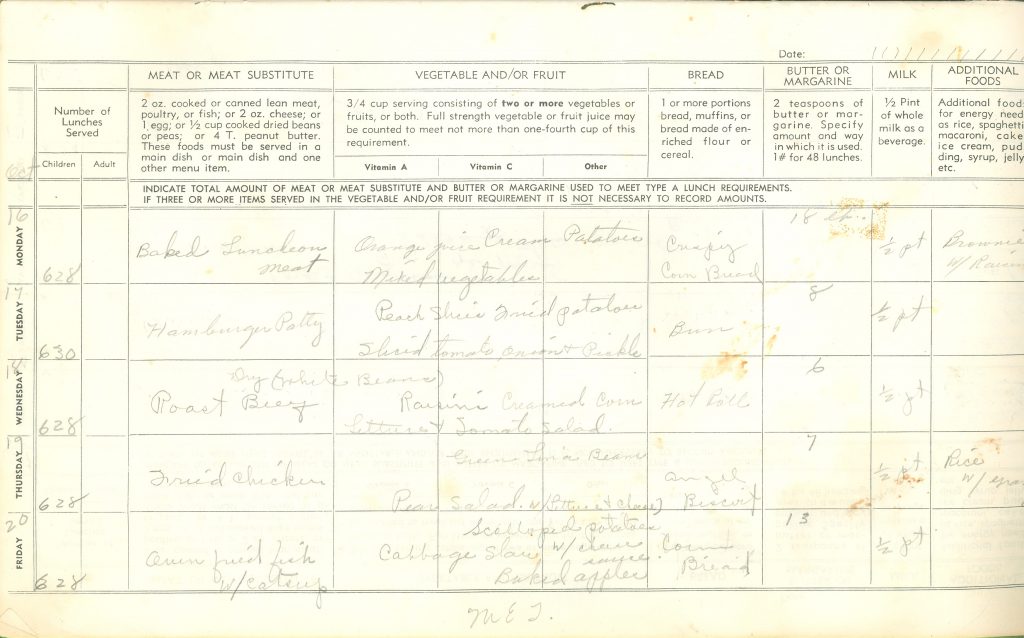 Date:
MEAT OR MEAT SUBSTITUTE
VEGETABLE AND/OR FRUIT
BREAD
BUTTER OR
MARGARINE
MILK
ADDITIONAL
FOODS
Number of
Lunches
Served
Children
Adult
2 oz. cooked or canned lean meat,
poultry, or fish; or 2 oz. cheese; or
1 egg; or ½ cup cooked dried beans
or peas; or 4 T. peanut butter.
These foods must be served in a
main dish or main dish and one
other menu item.
3/4 cup serving consisting of two or more vegetables or
fruits, or both. Full strength vegetable or fruit juice may
be counted to meet not more than one-fourth cup of this
requirement.
Vitamin A
Vitamin C
Other
1 or more portions
bread, muffins, or
bread made of en-
riched flour or
cereal.
2 teaspoons of
butter or mar-
garine. Specify
amount and way
in which it is used.
1# for 48 lunches.
½ Pint
of whole
milk as a
beverage.
Additional food
for energy need
as rice, spaghetti
macaroni, cake
ice cream, pud
ding, syrup, jelly
etc.
Oct
INDICATE TOTAL AMOUNT OF MEAT OR MEAT SUBSTITUTE AND BUTTER OR MARGARINE USED TO MEET TYPE A LUNCH REQUIREMENTS.
IF THREE OR MORE ITEMS SERVED IN THE VEGETABLE AND/OR FRUIT REQUIREMENT IT IS NOT NECESSARY TO RECORD AMOUNTS.
16
MONDAY
628
Baked Luncheon
Meat
Orange juice Cream Potatoes
Mixed vegetables
Crispy
Corn Bread
18 lb.
½ pt
Brownie
W/ Raisin
17
TUESDAY
630
Hamburger Patty
Peach Slices Fried potatoes
Sliced tomato, onion & Pickle
Bun
8
½ pt
18
WEDNESDAY
628
Dry (white Beans)
Roast Beef
Raisins Creamed Corn
Lettuce & Tomato Salad.
Hot Roll
6
½ pt
19
THURSDAY
628
Fried Chicken
Green Lima Beans
Pear Salad. w/(lettuce & cheese)
Angel
Biscuit
7
½ pt
Rice
w/
20
FRIDAY
628
Oven fried fish
w/catsup
Scalloped potatoes
w/ cheese
sauce.
Cabbage Slaw
Baked apples
Corn
Bread
13
½ pt